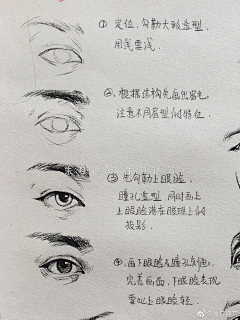 ① 定位,勾勒大致造型,
用线要浅。
②、根据结构先画出眉毛,
注意不同眉型的特征。
③ 先勾勒上眼脸
瞳孔造型 同时画上
上眼脸落在眼球上的
投影。
④、画下眼脸及瞳孔刻画,
完善画面,下眼脸表现
要比上眼脸轻。